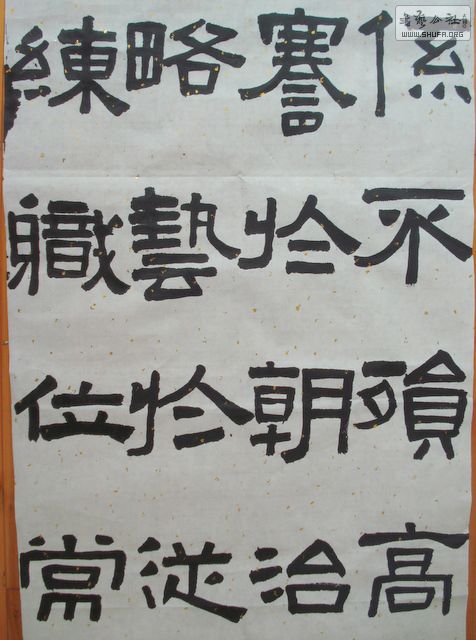 係不殞高
謇於朝治
略藝於從
練職位常
書藝公社
WWW.SHUFA.ORG